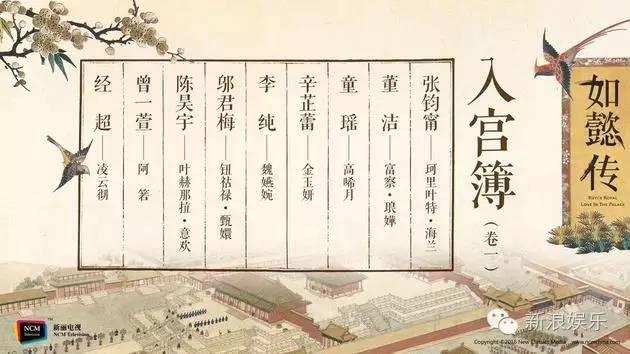 如懿传
RUYI'S ROYAL
LOVE IN THE PALACE
入宫簿(卷一)
张钧甯——珂里叶特·海兰
董洁——富察·琅嬅
童瑶——高晞月
辛芷蕾——金玉妍
李纯——魏嬿婉
邬君梅——钮祜禄·甄嬛
陈昊宇——叶赫那拉·意欢
曾一萱——阿箬
经超——凌云彻
NCM
Television
TM
新丽电视
NCM Television
新浪娱乐
Copyright ©2016 New Classics Media